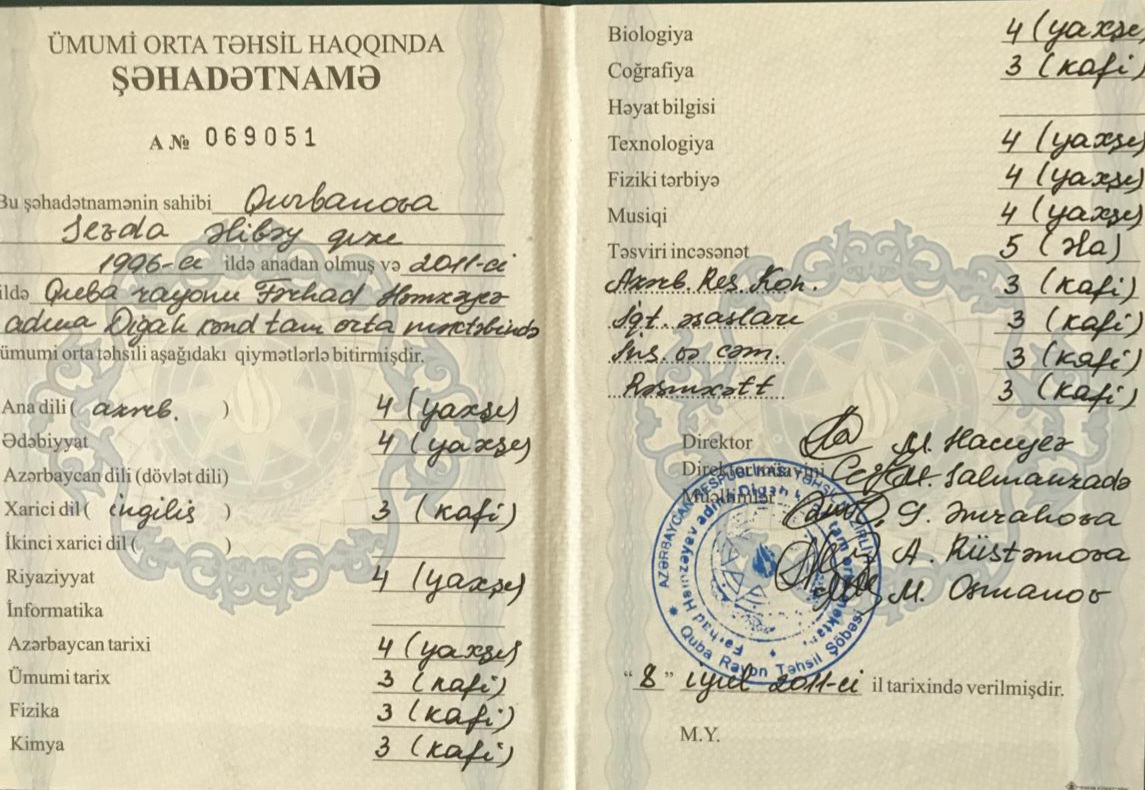 ÜMUMİ ORTA TƏHSİL HAQQINDA
ŞƏHADƏTNAMƏ
A № 069051
Bu şəhadətnamənin sahibi Qurbanova
Sevda Əlibəy qızı
1996-cı ildə anadan olmuş və 2011-ci
ildə Quba rayonu Fərhad Həmzəyev
adına Digah kənd tam orta məktəbində
ümumi orta təhsili aşağıdakı qiymətlərlə bitirmişdir.
Ana dili ( azərb. ) 4 (yaxşı)
Ədəbiyyat 4 (yaxşı)
Azərbaycan dili (dövlət dili)
Xarici dil ( ingilis ) 3 (kafi)
İkinci xarici dil ( )
Riyaziyyat 4 (yaxşı)
İnformatika
Azərbaycan tarixi 4 (yaxşı)
Ümumi tarix 3 (kafi)
Fizika 3 (kafi)
Kimya 3 (kafi)
Biologiya 4 (yaxşı)
Coğrafiya 3 (kafi)
Həyat bilgisi
Texnologiya 4 (yaxşı)
Fiziki tərbiyə 4 (yaxşı)
Musiqi 4 (yaxşı)
Təsviri incəsənət 5 (əla)
Azərb. Res. Kon. 3 (kafi)
İqt. əsasları 3 (kafi)
İns. və cəm. 3 (kafi)
Rəsmxətt 3 (kafi)
Direktor M. Hacıyev
Direktor müavini M. Salmanzadə
Müəllimlər G. Əmrahova
A. Rüstəmova
M. Osmanov
AZƏRBAYCAN RESPUBLİKASI TƏHSİL NAZİRLİYİ
Quba Rayon Təhsil Şöbəsi
Fərhad Həmzəyev adına Digah kənd tam orta məktəbi
“8” iyul 2011-ci il tarixində verilmişdir.
M.Y.